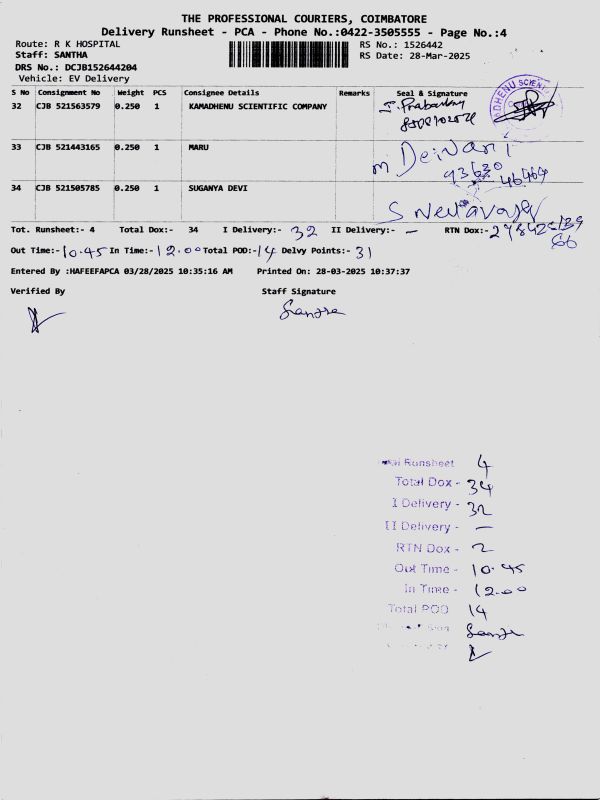 THE PROFESSIONAL COURIERS, COIMBATORE
Delivery Runsheet - PCA - Phone No.:0422-3505555 - Page No.:4
Route: R K HOSPITAL
Staff: SANTHA
DRS No.: DCJB152644204
Vehicle: EV Delivery
RS No.: 1526442
RS Date: 28-Mar-2025
S No Consignment No Weight PCS Consignee Details Remarks Seal & Signature
32 CJB 521563579 0.250 1 KAMADHENU SCIENTIFIC COMPANY
33 CJB 521443165 0.250 1 MARU
34 CJB 521505785 0.250 1 SUGANYA DEVI
Tot. Runsheet:- 4 Total Dox:- 34 I Delivery:- 32 II Delivery:- — RTN Dox:- 2
Out Time:- 10.45 In Time:- 12.00 Total POD:- 14 Delvy Points:- 31
Entered By :HAFEEFAPCA 03/28/2025 10:35:16 AM Printed On: 28-03-2025 10:37:37
Verified By Staff Signature
Runsheet 4
Total Dox - 34
I Delivery - 32
II Delivery - —
RTN Dox - 2
Out Time - 10.45
In Time - 12.00
Total POD 14